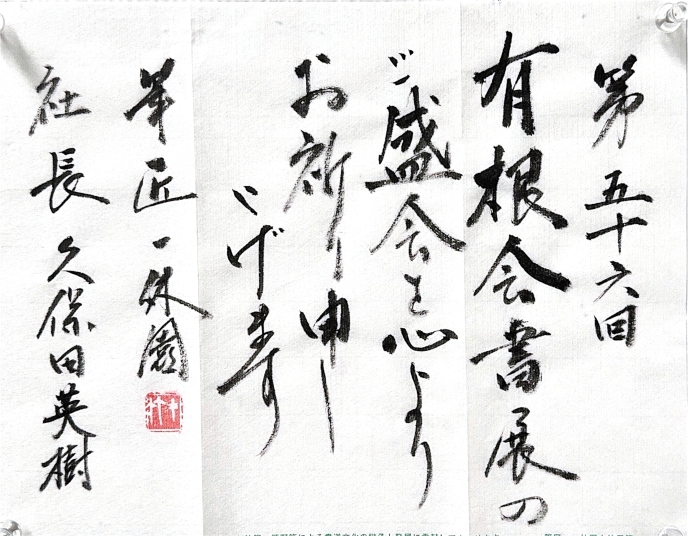 第五十六回
有根会書展の
ご盛会を心より
お祈り申し
上げます
筆匠一休園
社長久保田英樹